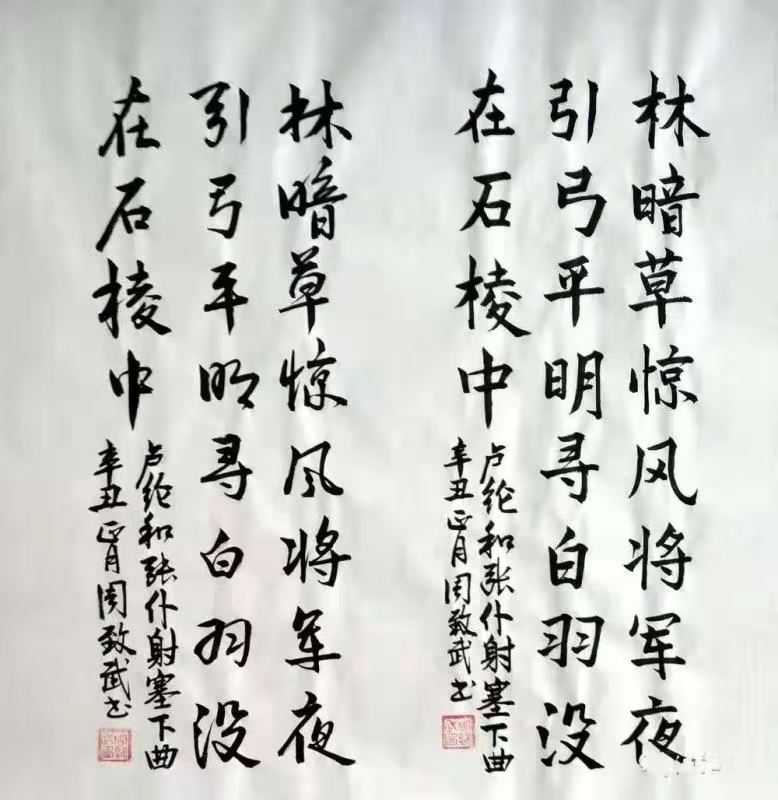 林暗草惊风将军夜
引弓平明寻白羽没
在石棱中
卢纶和张仆射塞下曲
辛丑正月周致武书
林暗草惊风将军夜
引弓平明寻白羽没
在石棱中
卢纶和张仆射塞下曲
辛丑正月周致武书